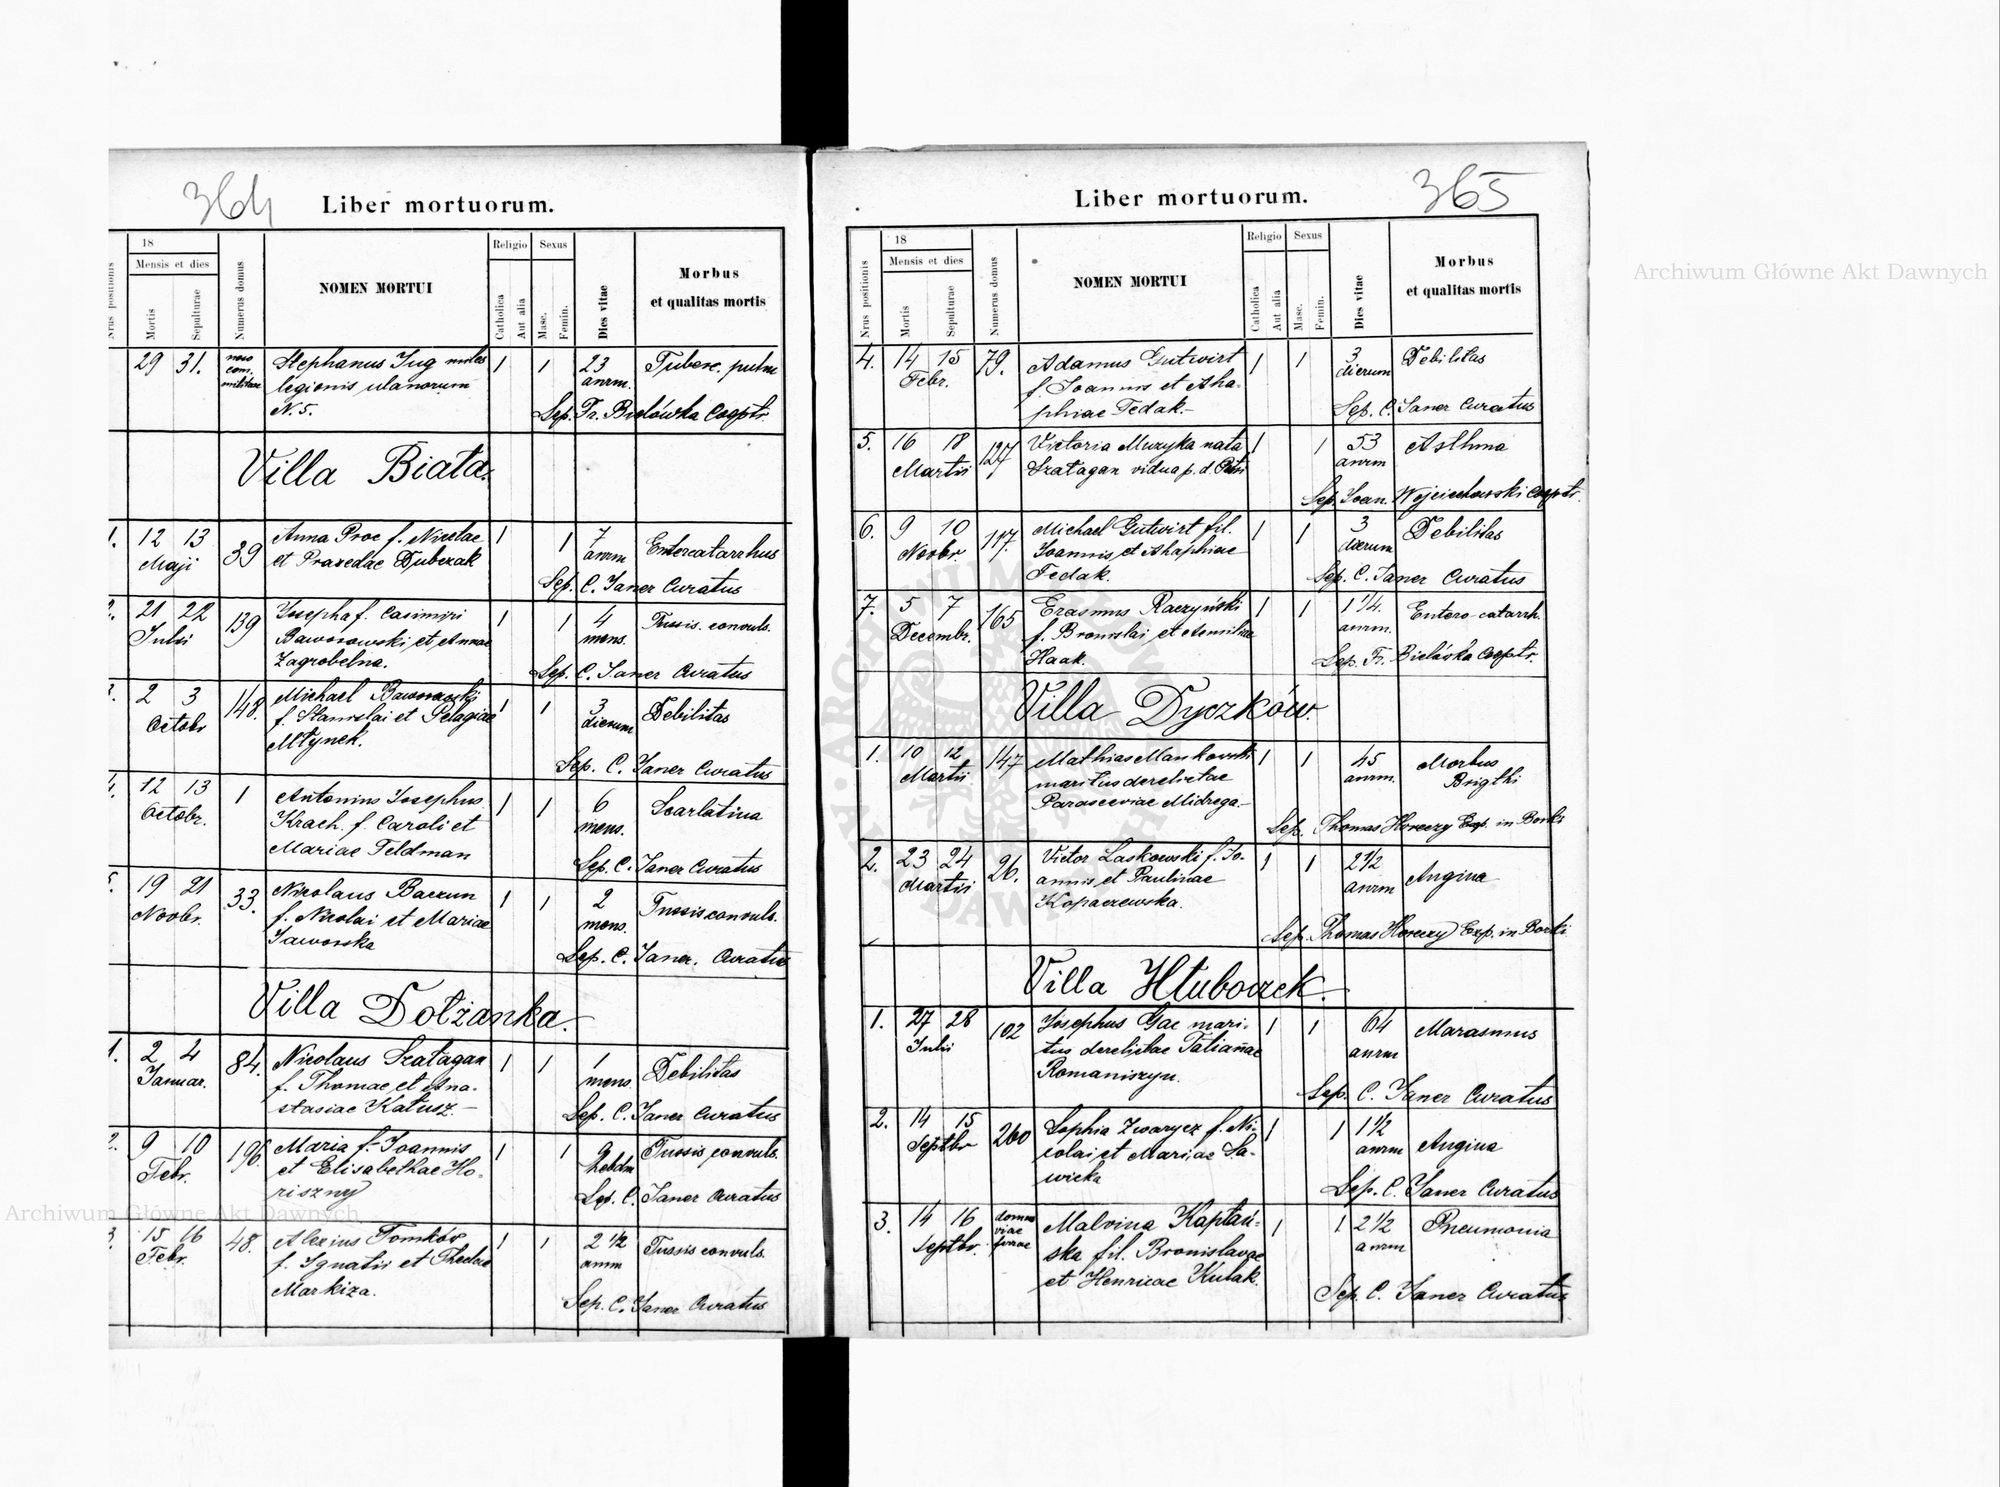 364
Liber mortuorum.
Nrus positionis
18
Mensis et dies
Mortis
Sepulturae
Numerus domus
NOMEN MORTUI
Religio
Catholica
Aut alia
Sexus
Masc.
Femin.
Dies vitae
Morbus
et qualitas mortis
29 31. Stephanus Jug miles 1 1 23 Tuberc. pulm
legionis ulanorum anrm.
N. 5. Sep. Fr. Bielówka Cooptr.
Villa Biała.
1. 12 13 39 Anna Proc f. Nicolae 1 1 7 Enterocatarrhus
Maji et Praxedae Dubczak anrm
Sep. C. Janer Curatus
2. 21 22 139 Josepha f. Casimiri 1 1 4 Tussis. convuls.
Julii Baworowski et Annae mens.
Zagrobelna. Sep. C. Janer Curatus
3. 2 3 148. Michael Baworowskj 1 1 3 Debilitas
Octobr f. Stanislai et Pelagiae dierum
Młynek. Sep. C. Janer Curatus
4. 12 13 1 Antonius Josephus 1 1 6 Scarlatina
Octobr. Krach. f. Caroli et mens.
Mariae Feldman Sep. C. Janer Curatus
5. 19 21 33. Nicolaus Baczun 1 1 2 Tussis convuls.
Novbr. f. Nicolai et Mariae mens.
Jaworska Sep. C. Janer. Curatus
Villa Dołżanka.
1. 2 4 84. Nicolaus Szatagan 1 1 1 Debilitas
Januar. f. Thomae et Ana- mens
stasiae Katusz.— Sep. C. Janer Curatus
2. 9 10 196. Maria f. Joannis 1 1 2 Tussis convuls.
Febr. et Elisabethae Ho- hebdm
riszny Sep. C. Janer Curatus
3. 15 16 48. Alexius Tomków 1 1 2 1/2 Tussis convuls.
Febr. f. Ignatii et Theclae anrm
Markiza. Sep. C. Janer Curatus
365
Liber mortuorum.
Nrus positionis
18
Mensis et dies
Mortis
Sepulturae
Numerus domus
NOMEN MORTUI
Religio
Catholica
Aut alia
Sexus
Masc.
Femin.
Dies vitae
Morbus
et qualitas mortis
4. 14 15 79. Adamus Gutwirt 1 1 3 Debilitas
Febr. f. Joannis et Aha- dierum
phiae Fedak.— Sep. C. Janer Curatus
5. 16 18 127 Victoria Muzyka nata 1 1 53 Asthma
Martii Szatagan vidua p. d. Petri anrm
Sep. Joan. Wojciechowski Cooptr.
6. 9 10 117. Michael Gutwirt fil. 1 1 3 Debilitas
Novbr. Joannis et Ahaphiae dierum
Fedak. Sep. C. Janer Curatus
7. 5 7 165 Erasmus Raczyński 1 1 1 1/4. Entero-catarrh.
Decembr. f. Bronislai et Aemiliae anrm.
Haak. Sep. Fr. Bielówka Cooptr.
Villa Dyczków.
1. 10 12 147 Mathias Mankowski 1 1 45 Morbus
Martii maritus derelictae anrm. Brigthi
Parasceviae Midrega.—
Sep. Thomas Horeczy Exp. in Borki
2. 23 24 26. Victor Laskowski f. Jo- 1 1 2 1/2 Angina
Martii annis et Paulinae anrm
Kopaczewska.
Sep. Thomas Horeczy Exp. in Borki
Villa Hłuboczek.
1. 27 28 102 Josephus Gac mari- 1 1 64 Marasmus
Julii tus derelictae Tatianae anrm
Romaniszyn. Sep. C. Janer Curatus
2. 14 15 260 Sophia Zwarycz f. Ni- 1 1 1 1/2 Angina
Septbr colai et Mariae Sa- anrm
wicka Sep. C. Janer Curatus
3. 14 16 domus viae ferrae Malvina Kaptań- 1 1 2 1/2 Pneumonia
Septbr. ska fil. Bronislavae anrm
et Henricae Kulak. Sep. C. Janer Curatus
Archiwum Główne Akt Dawnych
Archiwum Główne Akt Dawnych